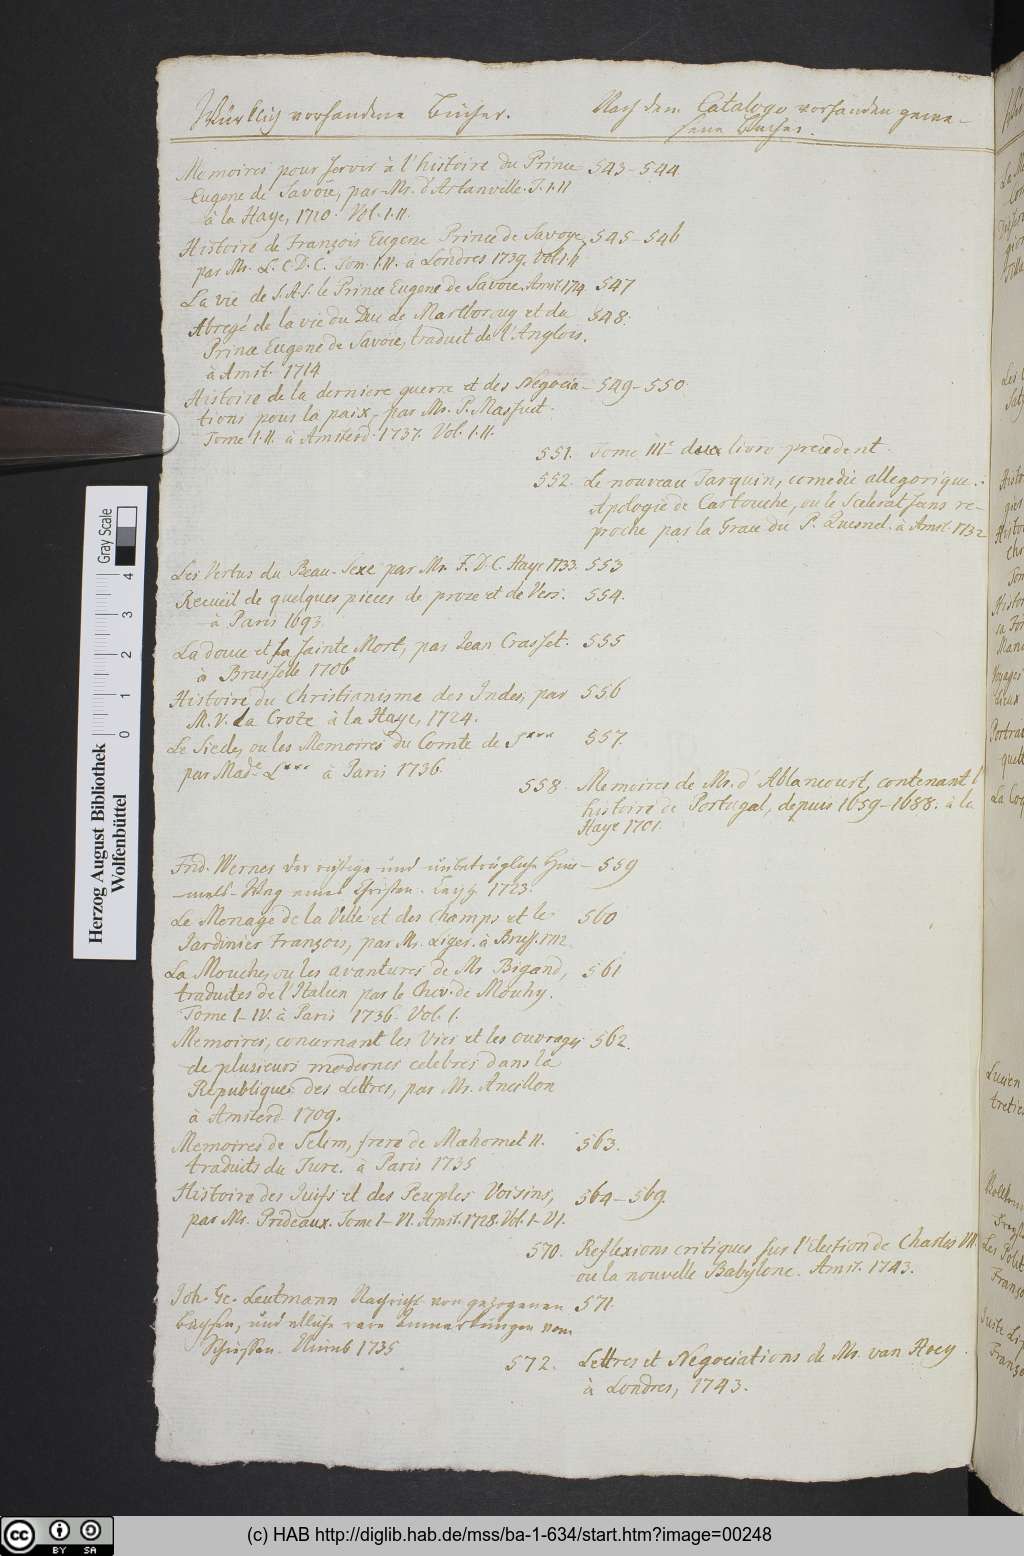 Würklich vorhandene Bücher.
Nach dem Catalogo vorhanden gewe-
sene Bücher.
Memoires pour servir à l'histoire du Prince 543-544
Eugene de Savoie, par Mr. d'Artanville. T. I. II
à la Haye, 1710. Vol. I. II.
Histoire de François Eugene Prince de Savoye, 545-546
par Mr. L. C. D. C. Tom. I. II. à Londres 1739. Vol. I. II
La vie de S. A. S. le Prince Eugene de Savoie. Amst. 1714 547
Abregé de la vie du Duc de Marlboroug et du 548.
Prince Eugene de Savoie, traduit de l'Anglois.
à Amst. 1714
Histoire de la derniere guerre et des Negocia- 549-550
tions pour la paix, par Mr. P. Massuet.
Tome I. II. à Amsterd. 1737. Vol. I. II.
551. Tome III.e livre precedent.
552. Le nouveau Tarquin, comedie allegorique.
Apologie de Cartouche, ou le Scelerat sans re-
proche par la Grace du P. Quesnel. à Amst. 1732
Les Vertus du Beau-Sexe par Mr. F. D. C. Haye 1733. 553
Recueil de quelques pieces de proze et de Vers. 554.
à Paris 1693.
La douce et la sainte Mort, par Jean Crasset. 555
à Brusselle 1706
Histoire du Christianisme des Indes, par 556
M. V. La Croze à la Haye, 1724.
Le Siecle, ou les Memoires du Comte de S*** 557.
par Made. L*** à Paris 1736.
558. Memoires de Mr. d'Ablancourt, contenant l'
histoire de Portugal, depuis 1659-1688. à la
Haye 1701.
Frid. Wernes der richtige und unbetrügliche Him- 559
mels-Weg eines Christen. Leipz. 1723.
Le Menage de la Ville et des Champs et le 560
Jardinier François, par Mr. Liger. à Bruss. 1712.
La Mouche, ou les avantures de Mr. Bigand, 561
traduites de l'Italien par le Chev. de Mouhy.
Tome I-IV. à Paris 1736. Vol. I.
Memoires, concernant les Vies et les ouvrages 562.
de plusieurs modernes celebres dans la
Republique des Lettres, par Mr. Ancillon
à Amsterd. 1709.
Memoires de Selim, frere de Mahomet II. 563.
traduits du Turc. à Paris 1735
Histoire des Juifs et des Peuples Voisins, 564-569.
par Mr. Prideaux. Tome I-VI. Amst. 1728. Vol. I-VI.
570. Reflexions critiques sur l'election de Charles VII
ou la nouvelle Babylone. Amst. 1743.
Joh. Ge. Leutmann Nachricht von gezogenen 571.
Büchsen, und etliche rare Anmerkungen vom
Schiessen. Nürnb 1735
572. Lettres et Negociations de Mr. van Hoey.
à Londres, 1743.
Gray Scale
0 1 2 3 4
Herzog August Bibliothek
Wolfenbüttel
(c) HAB http://diglib.hab.de/mss/ba-1-634/start.htm?image=00248
cc BY SA